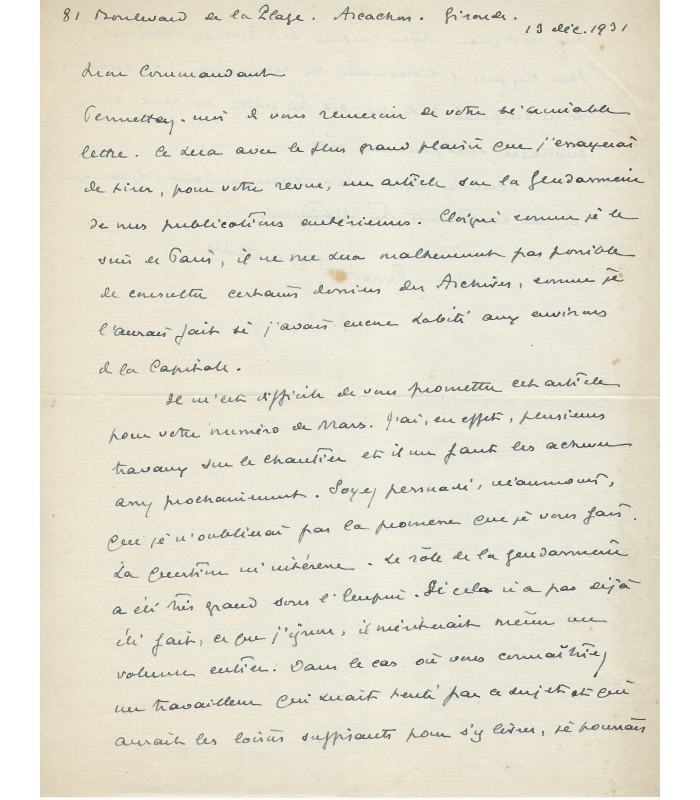 81 Boulevard de la Plage. Arcachon. Gironde.
13 déc. 1931
Mon Commandant
Permettez-moi de vous remercier de votre si aimable
lettre. Ce sera avec le plus grand plaisir que j'essayerai
de tirer, pour votre revue, un article sur la Gendarmerie
de mes publications antérieures. Éloigné comme je le
suis de Paris, il ne me sera malheureusement pas possible
de consulter certains dossiers des Archives, comme je
l'aurais fait si j'avais encore habité aux environs
de la Capitale.
Il m'est difficile de vous promettre cet article
pour votre numéro de Mars. J'ai, en effet, plusieurs
travaux sur le chantier et il me faut les achever
assez prochainement. Soyez persuadé, néanmoins,
que je n'oublierai pas la promesse que je vous fais.
La question m'intéresse. Le rôle de la gendarmerie
a été très grand sous l'Empire. Si cela n'a pas déjà
été fait, ce que j'ignore, il mériterait même un
volume entier. Dans le cas où vous connaîtriez
un travailleur qui serait tenté par ce sujet et qui
aurait les loisirs suffisants pour s'y livrer, je pourrais